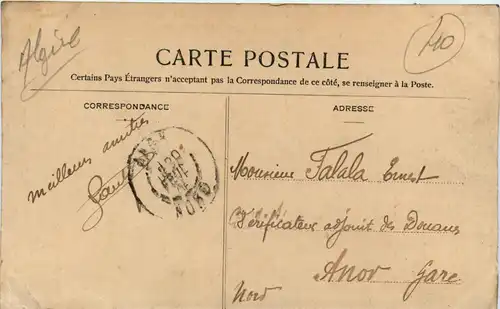 Algérie
40
CARTE POSTALE
Certains Pays Étrangers n'acceptent pas la Correspondance de ce côté, se renseigner à la Poste.
CORRESPONDANCE
ADRESSE
meilleures amitiés
ANOR
NORD
Monsieur Falala Ernest
Vérificateur adjoint des Douanes
Anor Gare
Nord